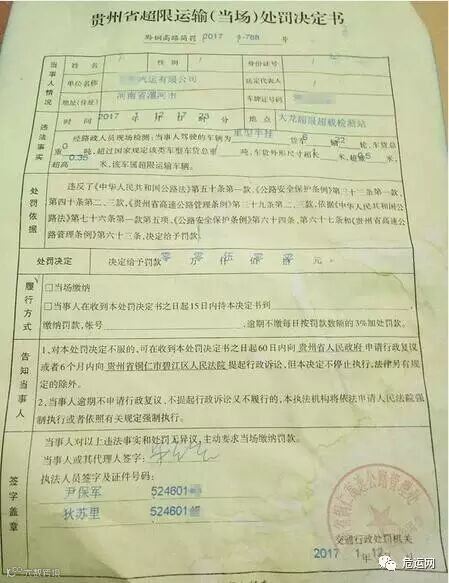 贵州省超限运输(当场)处罚决定书
黔铜高路简罚 2017 9-788 号
当事人情况
姓名 / 性别 / 身份证号 /
单位名称 汽运有限公司 法定代表人 /
地址(住址) 河南省漯河市 车牌证号码
违法事实
时间 2017 年 月 日 时 分 地点 大龙超限超载检测站
经路政人员现场检测:当事人驾驶的车辆为 重型半挂 货车 6 轴 22 轮,车货总
重 0 吨,超过国家规定该类型车货总重 吨,车货外形尺寸超长 米,超宽 米,
超高 0.35 米,该车属超限运输车辆。
处罚依据
违反了《中华人民共和国公路法》第五十条第一款、《公路安全保护条例》三十三条第一款、
第四十条第二、三款,《贵州省高速公路管理条例》三十九条第二、三款,依据《中华人民共和国公
路法》第七十六条第一款第五项,《公路安全保护条例》六十四条、第六十七条和《贵州省高速公
路管理条例》六十三条,决定给予罚款
处罚决定 决定给予罚款 零 万 零 仟 伍 佰 零 拾 零 元
履行方式
□当场缴纳
□当事人在收到本处罚决定书之日起15日内持本决定书到
缴纳罚款,帐号 ,逾期不缴每日按罚款数额的3%加处罚款。
告知当事人
1、对本处罚决定不服的,可在收到本处罚决定书之日起60日内向 贵州省人民政府 申请行政复议
或者6个月内向 贵州省铜仁市碧江区人民法院 提起行政诉讼,但本决定不停止执行,法律另有规
定的除外。
2、当事人逾期不申请行政复议、不提起行政诉讼又不履行的,本执法机构将依法申请人民法院强
制执行或者依照有关规定强制执行。
签字盖章
当事人对以上违法事实和处罚无异议,主动要求当场缴纳罚款。
当事人或其代理人签字:
执法人员签字及证件号码:
尹保军 524601
狄苏里 524601
交通行政处罚机关
2017 年 12 月 日
危运网